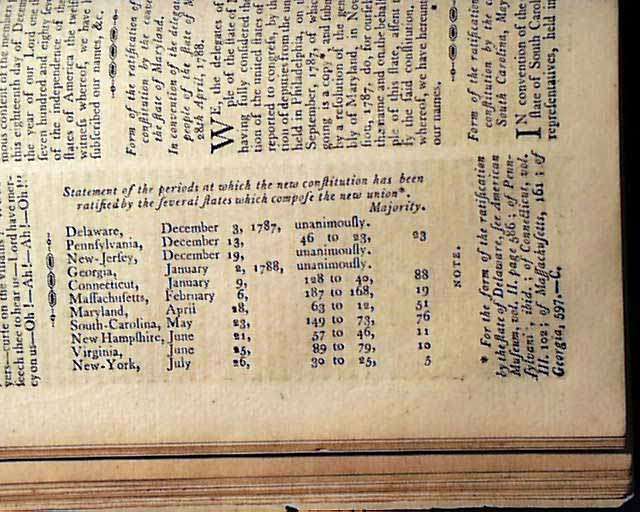 conſent of the members
this eighteenth day of
the year of our Lord one
ſeven hundred and eighty
of the independence of the
ſtates of America the
witneſs whereof, we have
ſubſcribed our names, &c.
Form of the ratification of
conſtitution by the
the ſtate of Maryland.
In convention of the
people of the ſtate of
28th April, 1788.
WE, the delegates of
ple of the ſtate of
having fully conſidered the
tion of the united ſtates of
reported to congreſs, by the
tion of deputies from the
held in Philadelphia, on
September, 1787, of which
going is a copy*, and
by a reſolution of the
bly of Maryland in
ſion, 1787, do, for
the name and on the behalf
ple of this ſtate, aſſent
fy the ſaid conſtitution.
whereof, we have
our names,
Form of the ratification
conſtitution by the
South Carolina, May
IN convention of the
ſtate of South
repreſentatives, held
hear us—Lord have
on us—Oh!—Ah!—Ah!—Oh!"
Statement of the periods at which the new conſtitution has been
ratified by the ſeveral ſtates which compoſe the new union*.
Majority.
Delaware, December 3, 1787, unanimouſly.
Pennſylvania, December 13, 46 to 23, 23
New-Jerſey, December 19, unanimouſly.
Georgia, January 2, 1788, unanimouſly.
Connecticut, January 9, 128 to 40, 88
Maſſachuſetts, February 6, 187 to 168, 19
Maryland, April 28, 63 to 12, 51
South-Carolina, May 23, 149 to 73, 76
New Hampſhire, June 21, 57 to 46, 11
Virginia, June 25, 89 to 79, 10
New-York, July 26, 30 to 25, 5
NOTE.
* For the form of the ratification
by the ſtate of Delaware, ſee American
Muſeum, vol. II. page 586; of Penn-
ſylvania, ibid.; of Connecticut, vol.
III. 102; of Maſſachuſetts, 161; of
Georgia, 597.—C.